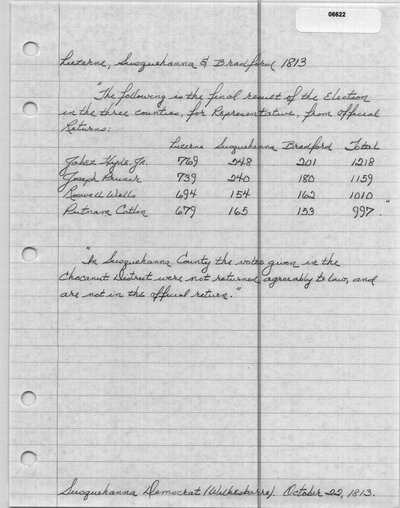 06622
Luzerne, Susquehanna & Bradford 1813
"The following is the final result of the Election
in the three counties, for Representative, from official
Returns:
Luzerne Susquehanna Bradford Total
Jabez Hyde, Jr. 769 248 201 1218
Joseph Pruner 739 240 180 1159
Roswell Wells 694 154 162 1010
Putnam Catlin 679 165 153 997."
"In Susquehanna County the votes given in the
Choconut District were not returned agreeably to law, and
are not in the official return."
Susquehanna Democrat (Wilkesbarre). October 22, 1813.